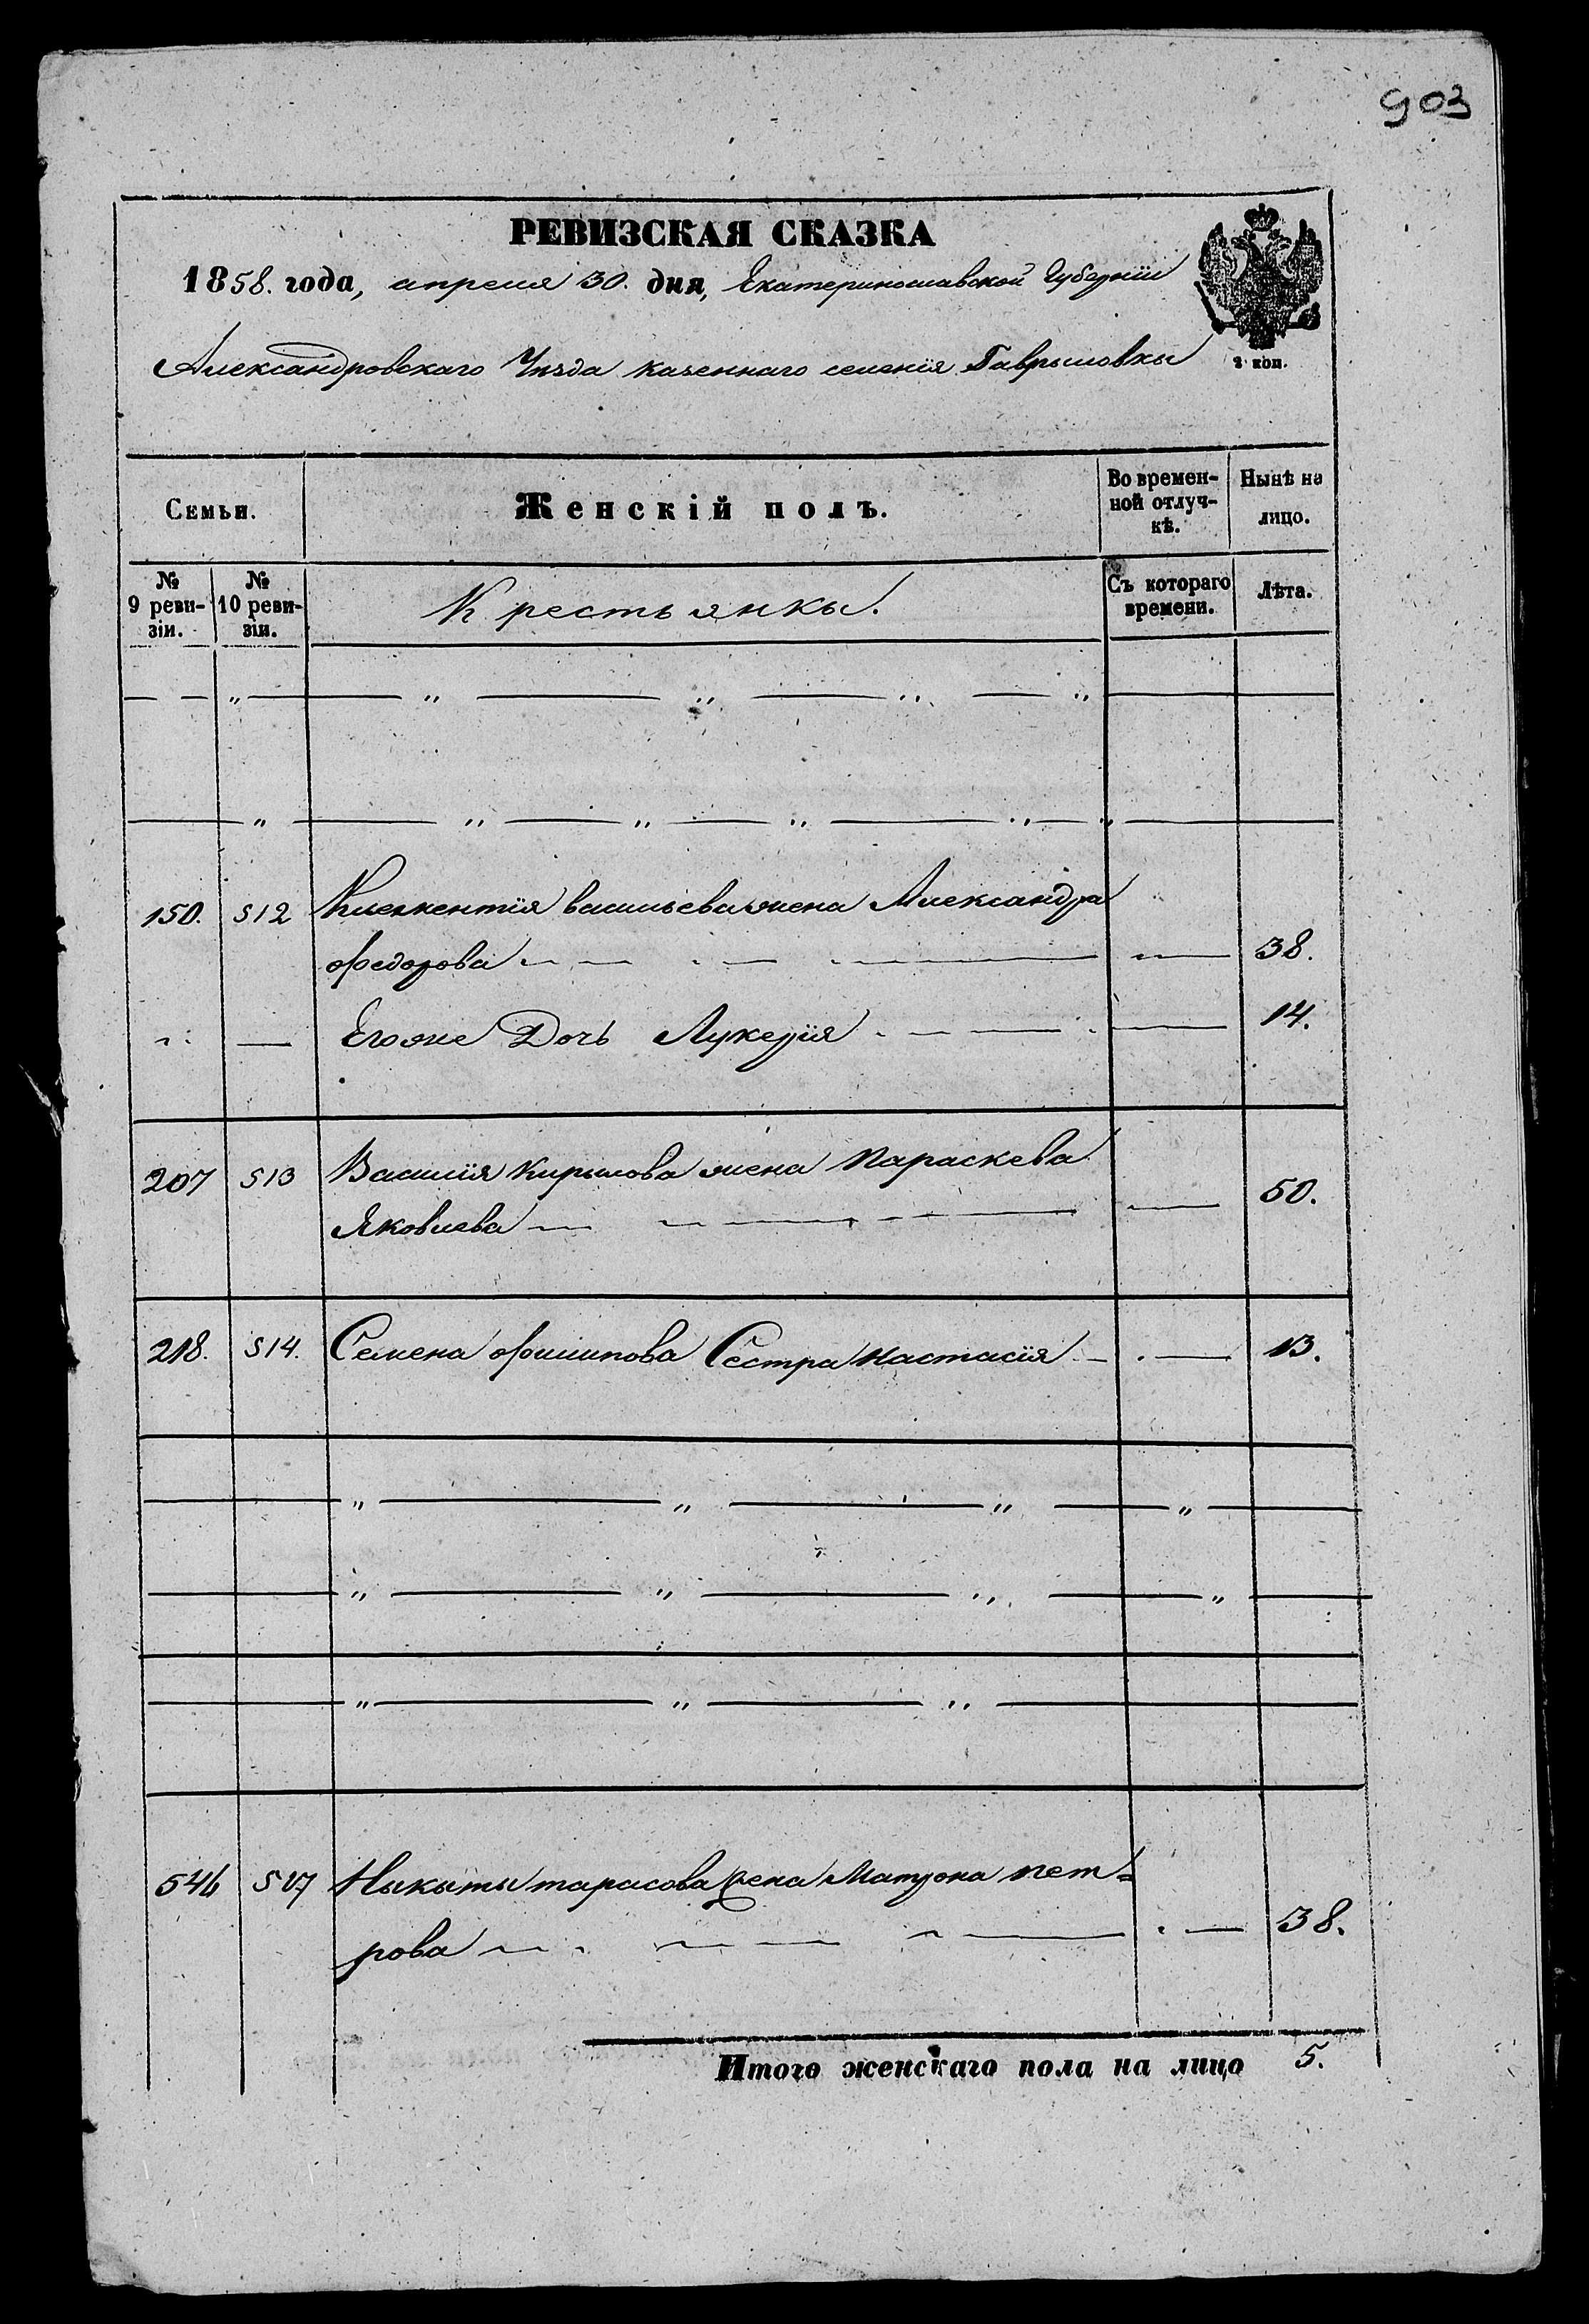 903
РЕВИЗСКАЯ СКАЗКА
1858. года, апреля 30. дня, Екатеринославской Губерніи
Александровскаго Уѣзда казеннаго селенія Гаврыловкы
2 коп.
Семьи. Женскій полъ. Во времен-ной отлуч-кѣ. Нынѣ на лицо.
№ 9 реви-зіи. № 10 реви-зіи. Крестьянкы. Съ котораго времени. Лѣта.
150. 512 Климентія васильева жена Александра
федорова 38.
Егоже Дочь Лукерія 14.
207 513 Василія Кирылова жена Параскева
Яковлева 50.
218. 514. Семена филипова Сестра Настасія 13.
546 517 Ныкыты тарасова жена Матрона пет=
рова 38.
Итого женскаго пола на лицо 5.